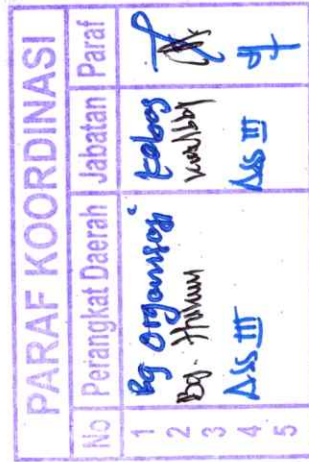 PARAF KOORDINASI
No Perangkat Daerah Jabatan Paraf
1 Bg Organisasi Kabag
2 Bg. Hukum
3
4 Ass III Ass III
5